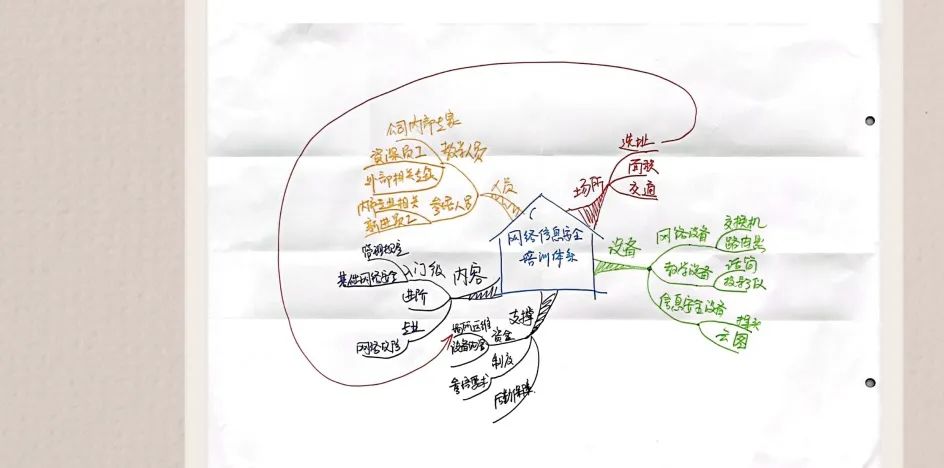 网络信息安全
培训体系
场所
选址
面积
交通
设备
网络设备
交换机
路由器
教学设备
话筒
投影仪
信息安全设备
探头
云图
支撑
资金
场所运维
设备购置
制度
参培要求
后勤保障
内容
入门级
管理规定
基础网络安全
进阶
专业
网络攻防
人员
教学人员
公司内部专家
资深员工
外部相关专家
参培人员
内部专业相关
新进员工